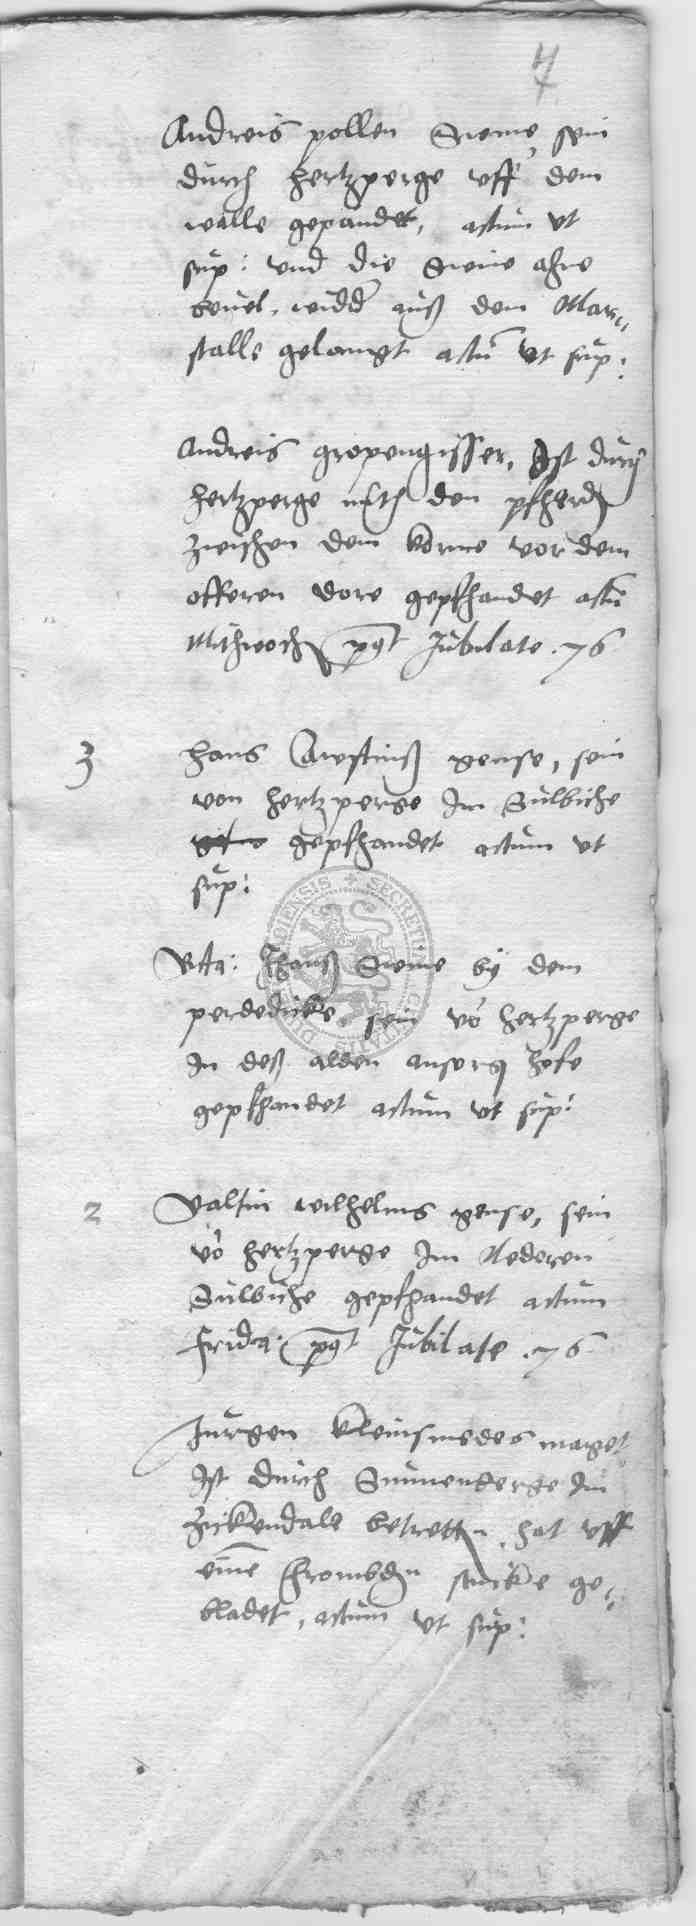 7
Andreis pollen Sweine, sein
durch hertzperge vff dem
walle gepandet, actum vt
sup: vnd die Sweine ahne
beuel, widder auß dem Mar„
stalle gelangt actū vt sup:
Andreis gropengisser, Ist durch
hertzperge mith den pfherdē
zwischen dem korne vor dem
offeren dore gepfhandet actū
Mithwochē pꝰt Jubilate . 76
3
hans Carstinß gense, sein
von hertzperge Im Sulbiche
gepfhandet actum vt
sup:
hanß Sweine by dem
perdedicke, sein vō hertzperge
In deß alden hofe
gepfhandet actum vt sup:
2
Valtin wilhelms gense, sein
vō hertzperge Im Nederen
Sulbiche gepfhandet actum
frida: pꝰt Jubilate . 76
Jurgen kleinsmedes maget
Ist durch Sunnenberge Im
Zickendale betretten, hat vff
eine frombden stucke ge„
bladet, actum vt sup:
SECRETUM